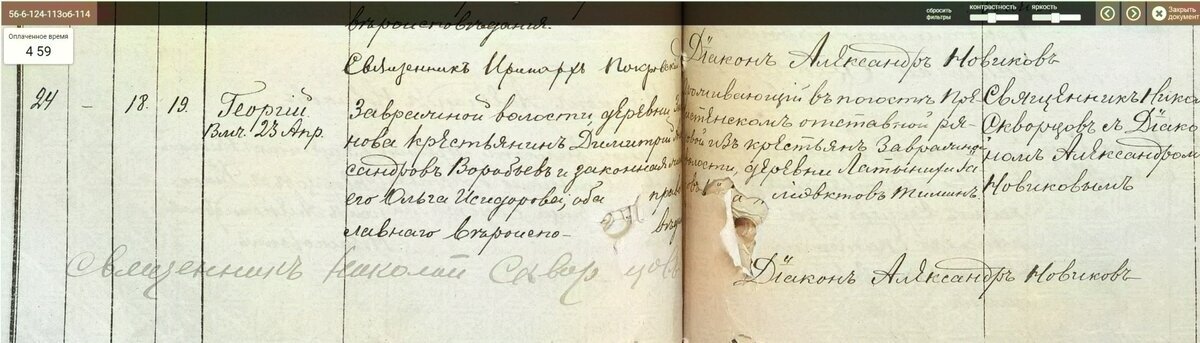 56-6-124-113об-114
сбросить
фильтры
контрастность
яркость
Закрыть
документ
Оплаченное время
4 59
вѣроисповѣданія.
Священникъ Иринархъ Покровскій
Діаконъ Александръ Новиковъ
24 - 18. 19. Георгій.
Влм. 23 Апр.
Завражной волости, деревни
нова крестьянинъ Димитрій
сандровъ Воробьевъ и законная
его Ольга Исидоровна, оба прав
лавнаго вѣроиспо- вѣд
въ погостѣ
отставной ря-
довой изъ крестьянъ Завражной
волости, деревни
Священникъ Нико
Скворцовъ съ Діако
номъ Александромъ
Новиковымъ
Священникъ Николай Скворцовъ
Діаконъ Александръ Новиковъ